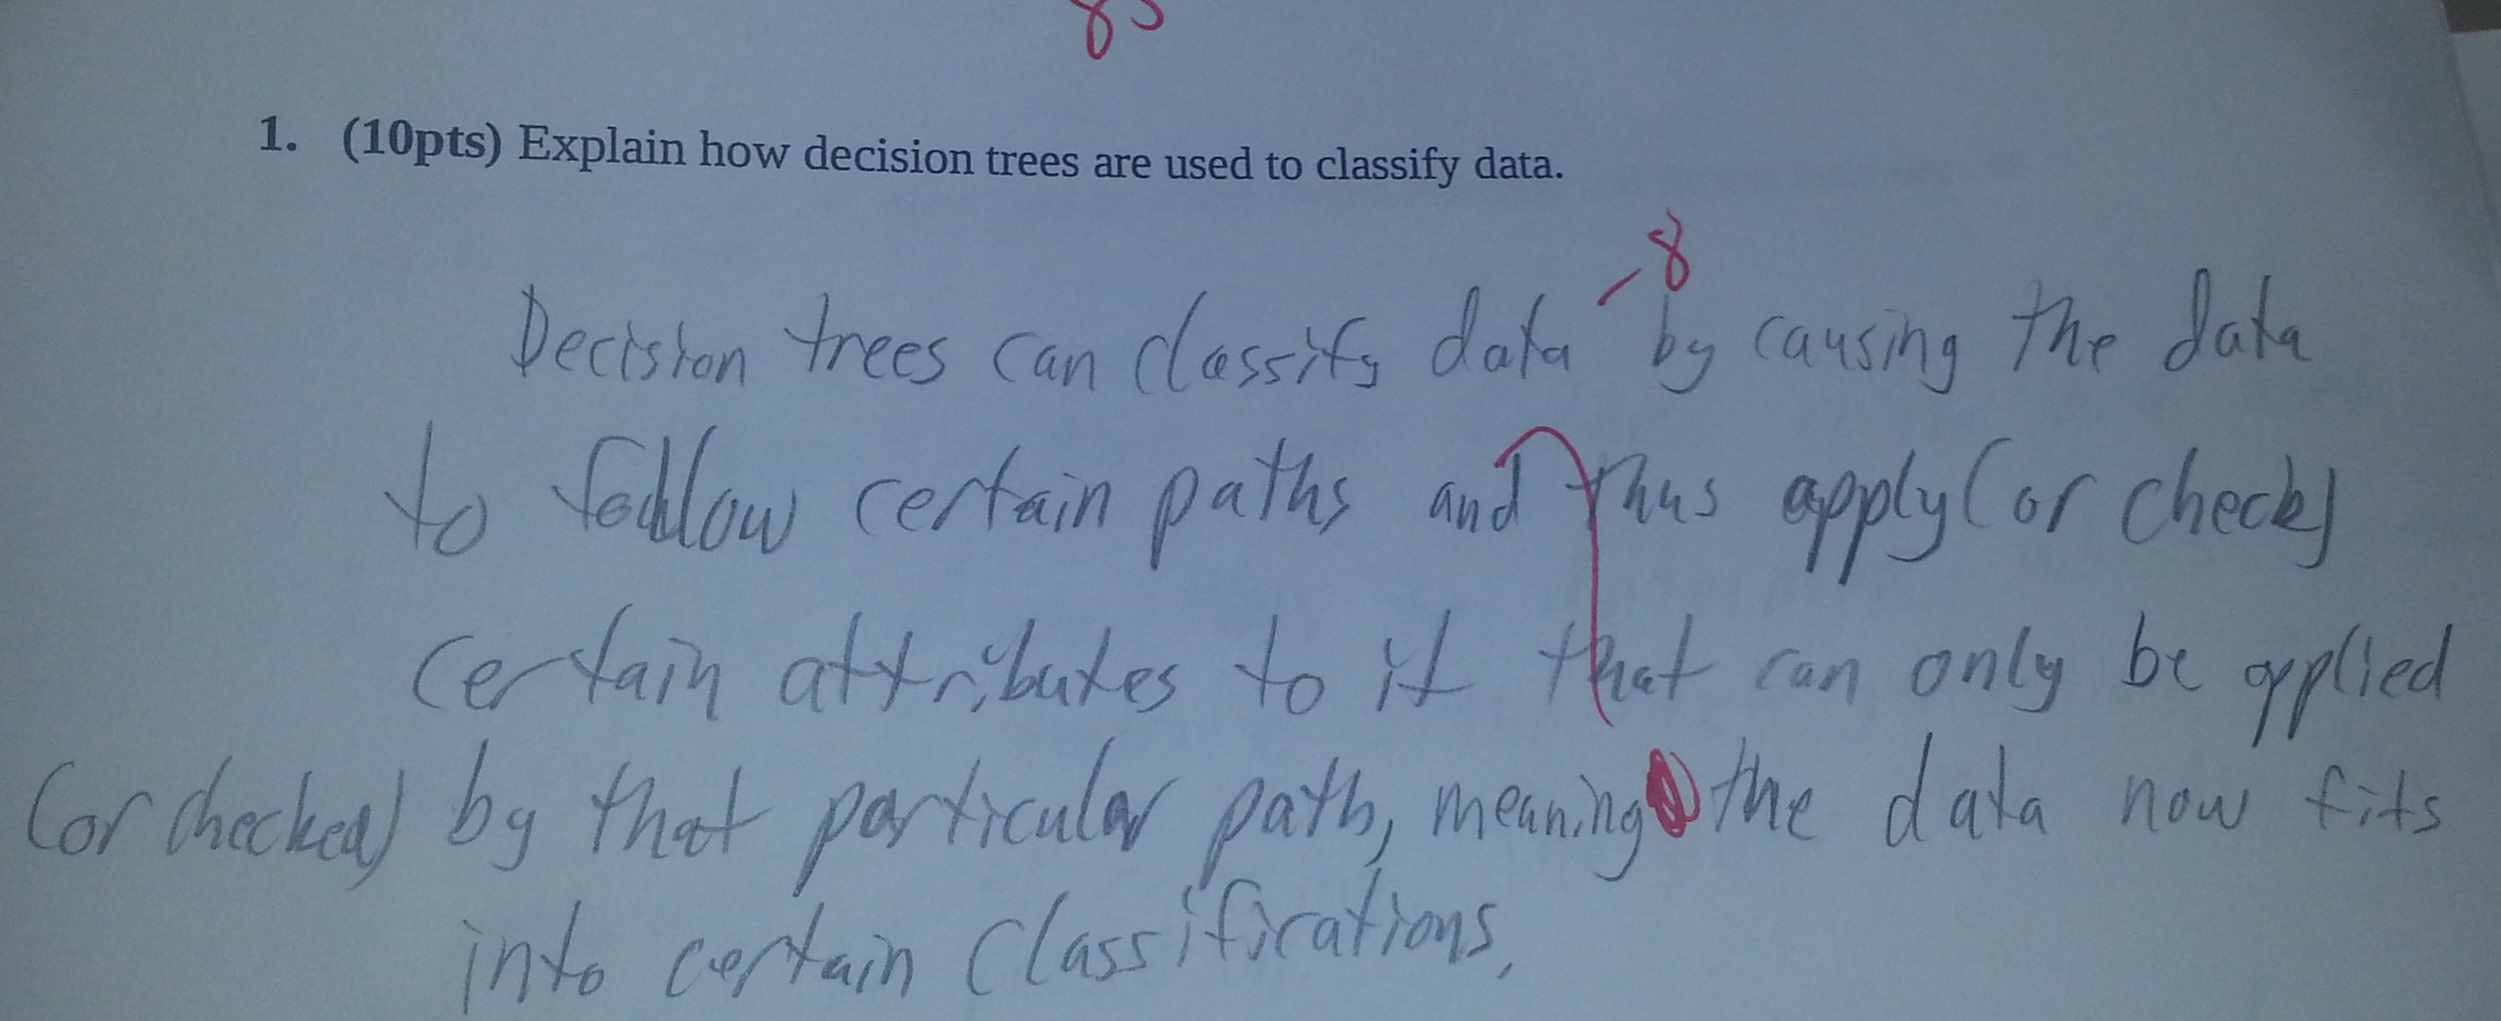 85
1. (10pts) Explain how decision trees are used to classify data.
-8
Decision trees can classify data by causing the data
to follow certain paths and thus apply (or check)
certain attributes to it that can only be applied
(or checked) by that particular path, meaning the data now fits
into certain classifications.